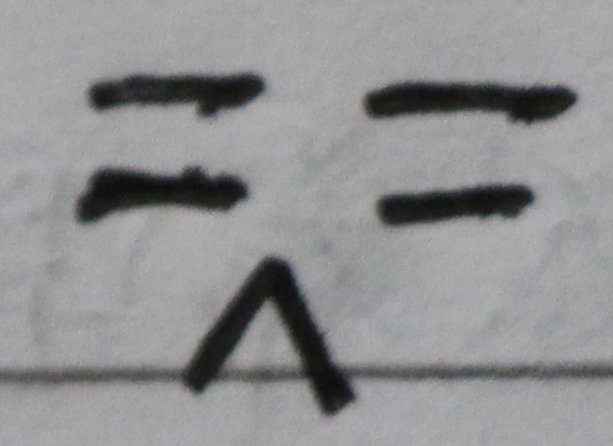 = =
^